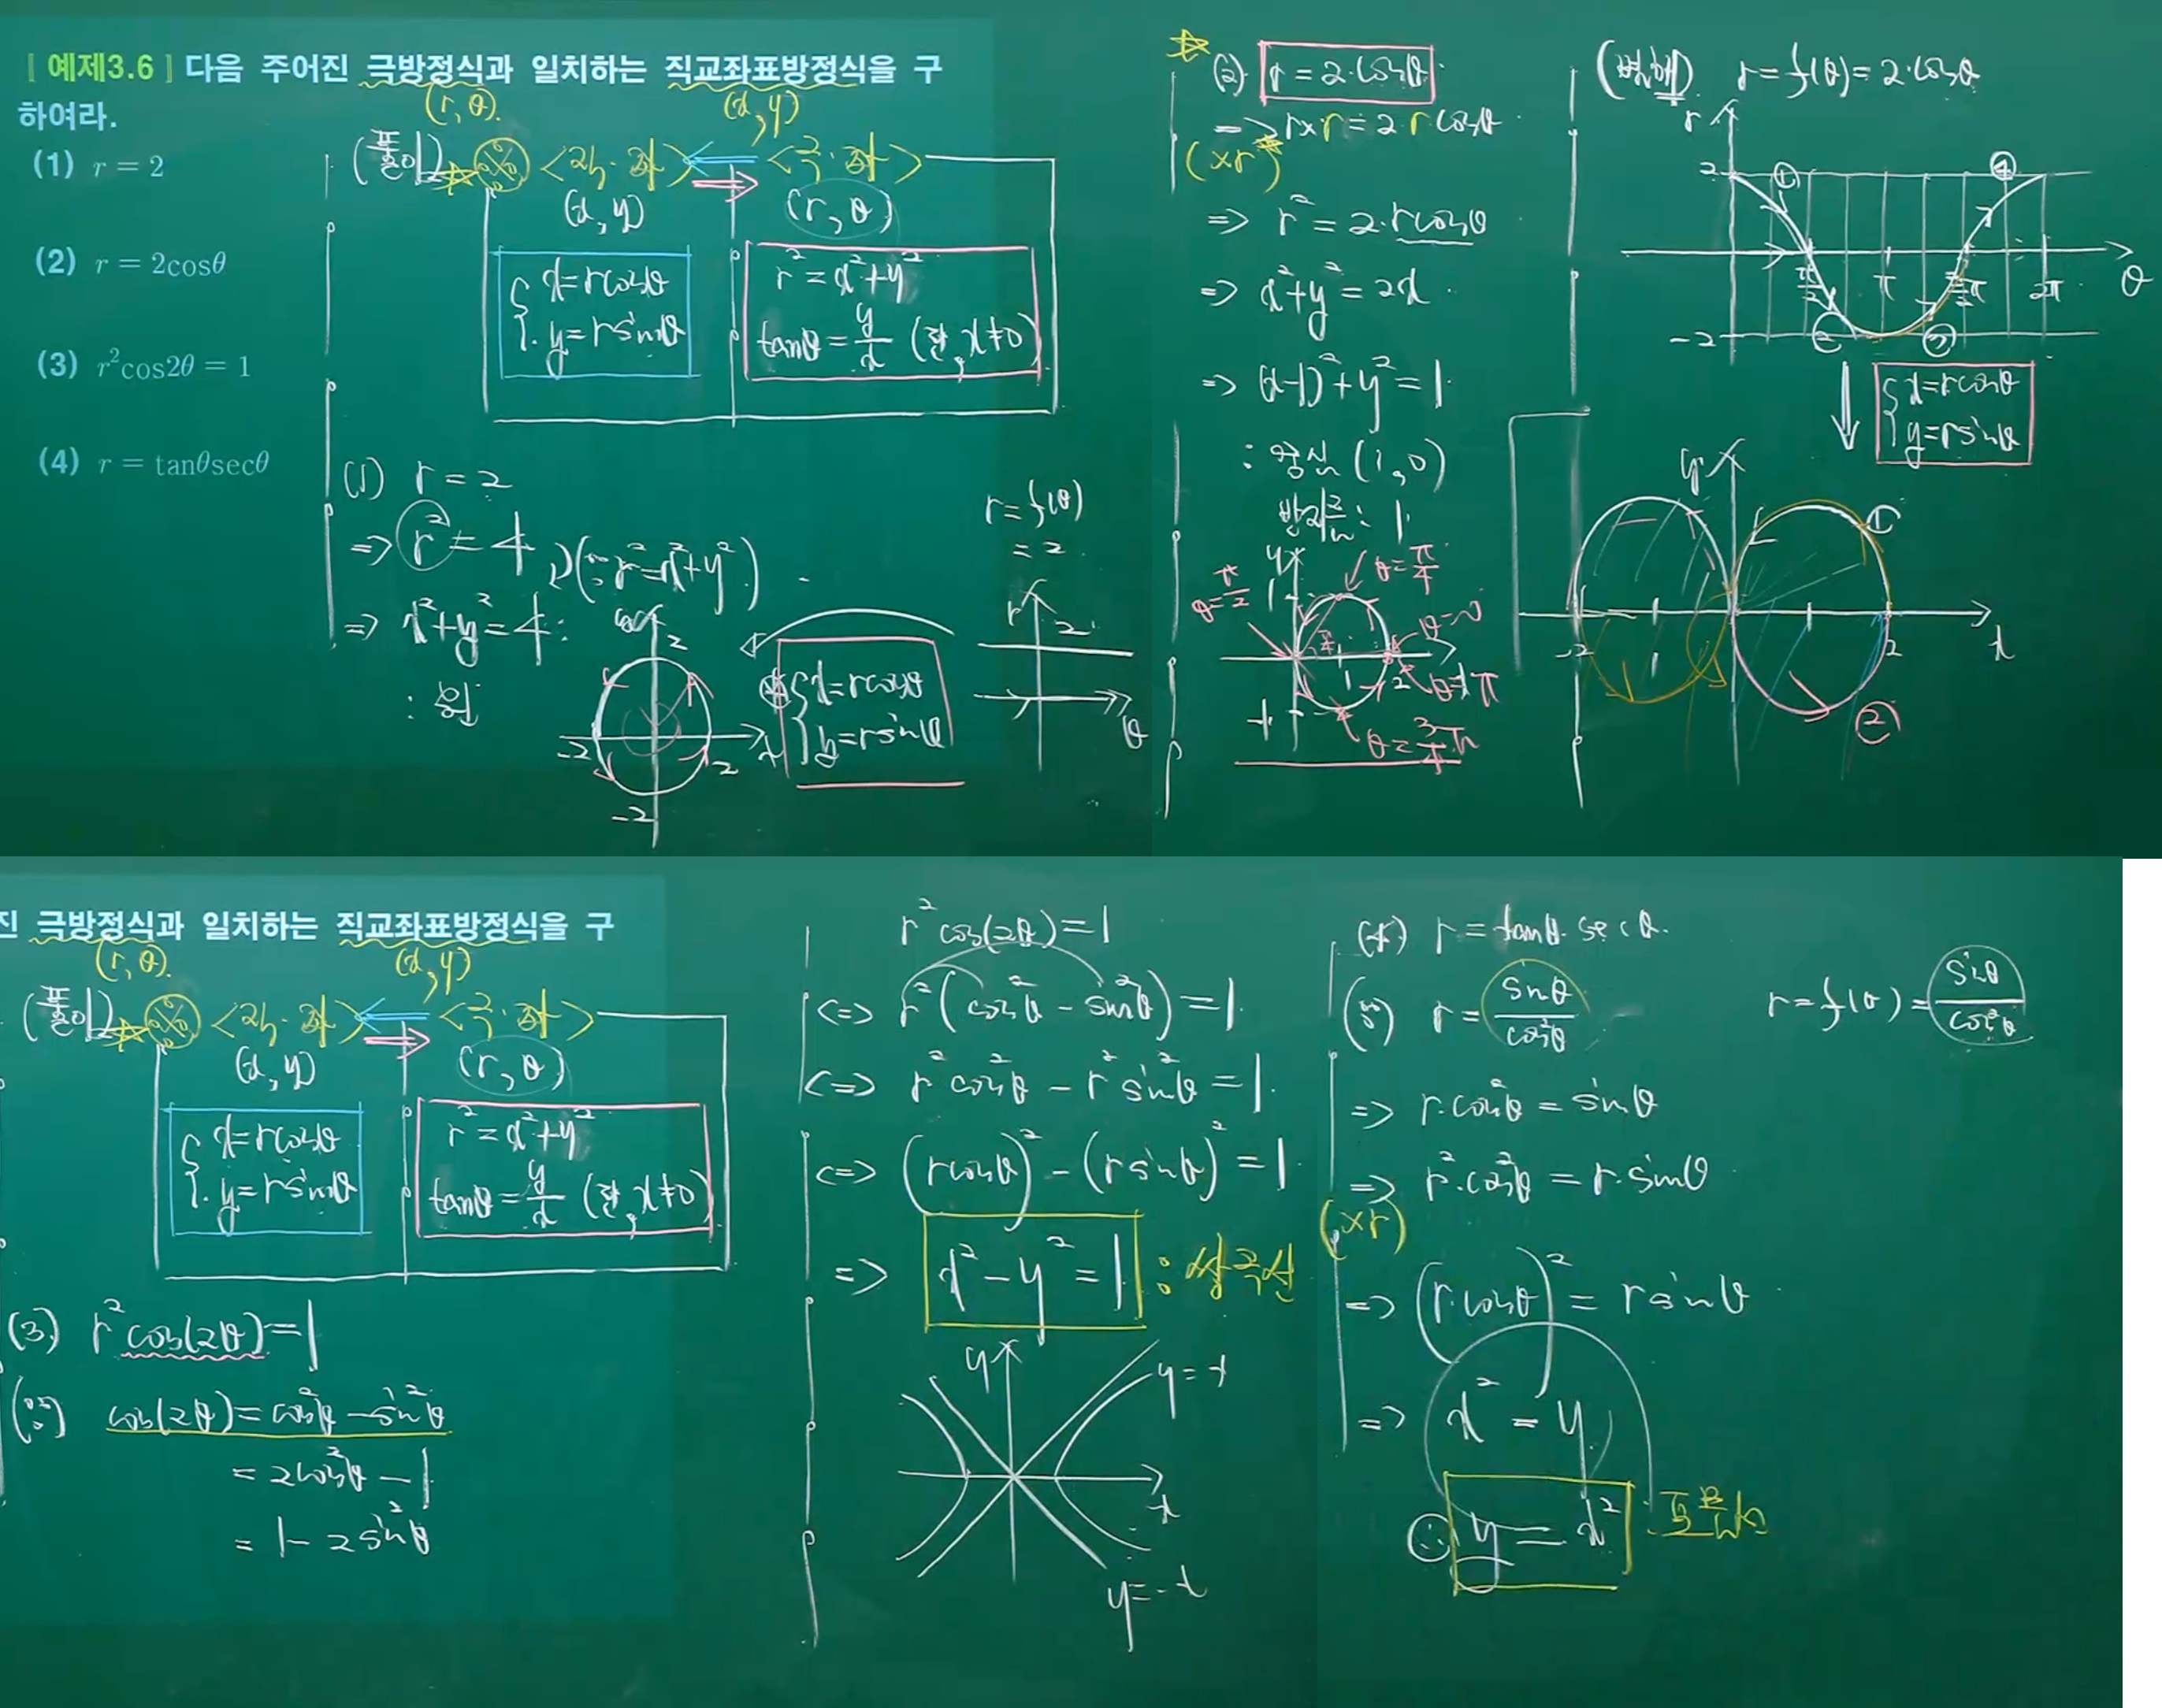 [ 예제3.6 ] 다음 주어진 극방정식과 일치하는 직교좌표방정식을 구
하여라.
(r, θ). (x, y)
(1) r = 2
(2) r = 2cosθ
(3) r²cos2θ = 1
(4) r = tanθsecθ
(풀이)
(x, y) (r, θ)
x=rcosθ
y=rsinθ
r²=x²+y²
tanθ=y/x (단, x≠0)
(1) r=2
=> r²=4 (∵ r²=x²+y²)
=> x²+y²=4 :
: 원
y 2
-2 2 x
-2
x=rcosθ
y=rsinθ
r=f(θ)
=2
r 2
θ
(2) r=2·cosθ
=> r×r=2·r cosθ
(×r)
=> r²=2·rcosθ
=> x²+y²=2x
=> (x-1)²+y²=1
: 중심 (1,0)
반지름: 1
y
θ=π/2 1 θ=π/4
θ=0
1 2 θ=π
-1 θ=3/4π
r=f(θ)=2·cosθ
r
2 ① ④
π/2 π 3/2π 2π θ
-2 ② ③
x=rcosθ
y=rsinθ
y
①
-2 2 x
②
진 극방정식과 일치하는 직교좌표방정식을 구
(r, θ). (x, y)
(풀이)
(x, y) (r, θ)
x=rcosθ
y=rsinθ
r²=x²+y²
tanθ=y/x (단, x≠0)
(3) r²cos(2θ)=1
(∵) cos(2θ)=cos²θ-sin²θ
=2cos²θ-1
=1-2sin²θ
r²cos(2θ)=1
<=> r²(cos²θ-sin²θ)=1
<=> r²cos²θ-r²sin²θ=1
<=> (rcosθ)²-(rsinθ)²=1
=> x²-y²=1 : 쌍곡선
y y=x
x
y=-x
(4) r=tanθ·secθ
(∵) r=sinθ/cos²θ
=> r·cos²θ=sinθ
=> r²·cos²θ=r·sinθ
(×r)
=> (r·cosθ)²=rsinθ
=> x²=y
∴ y=x² : 포물선
r=f(θ)=sinθ/cos²θ